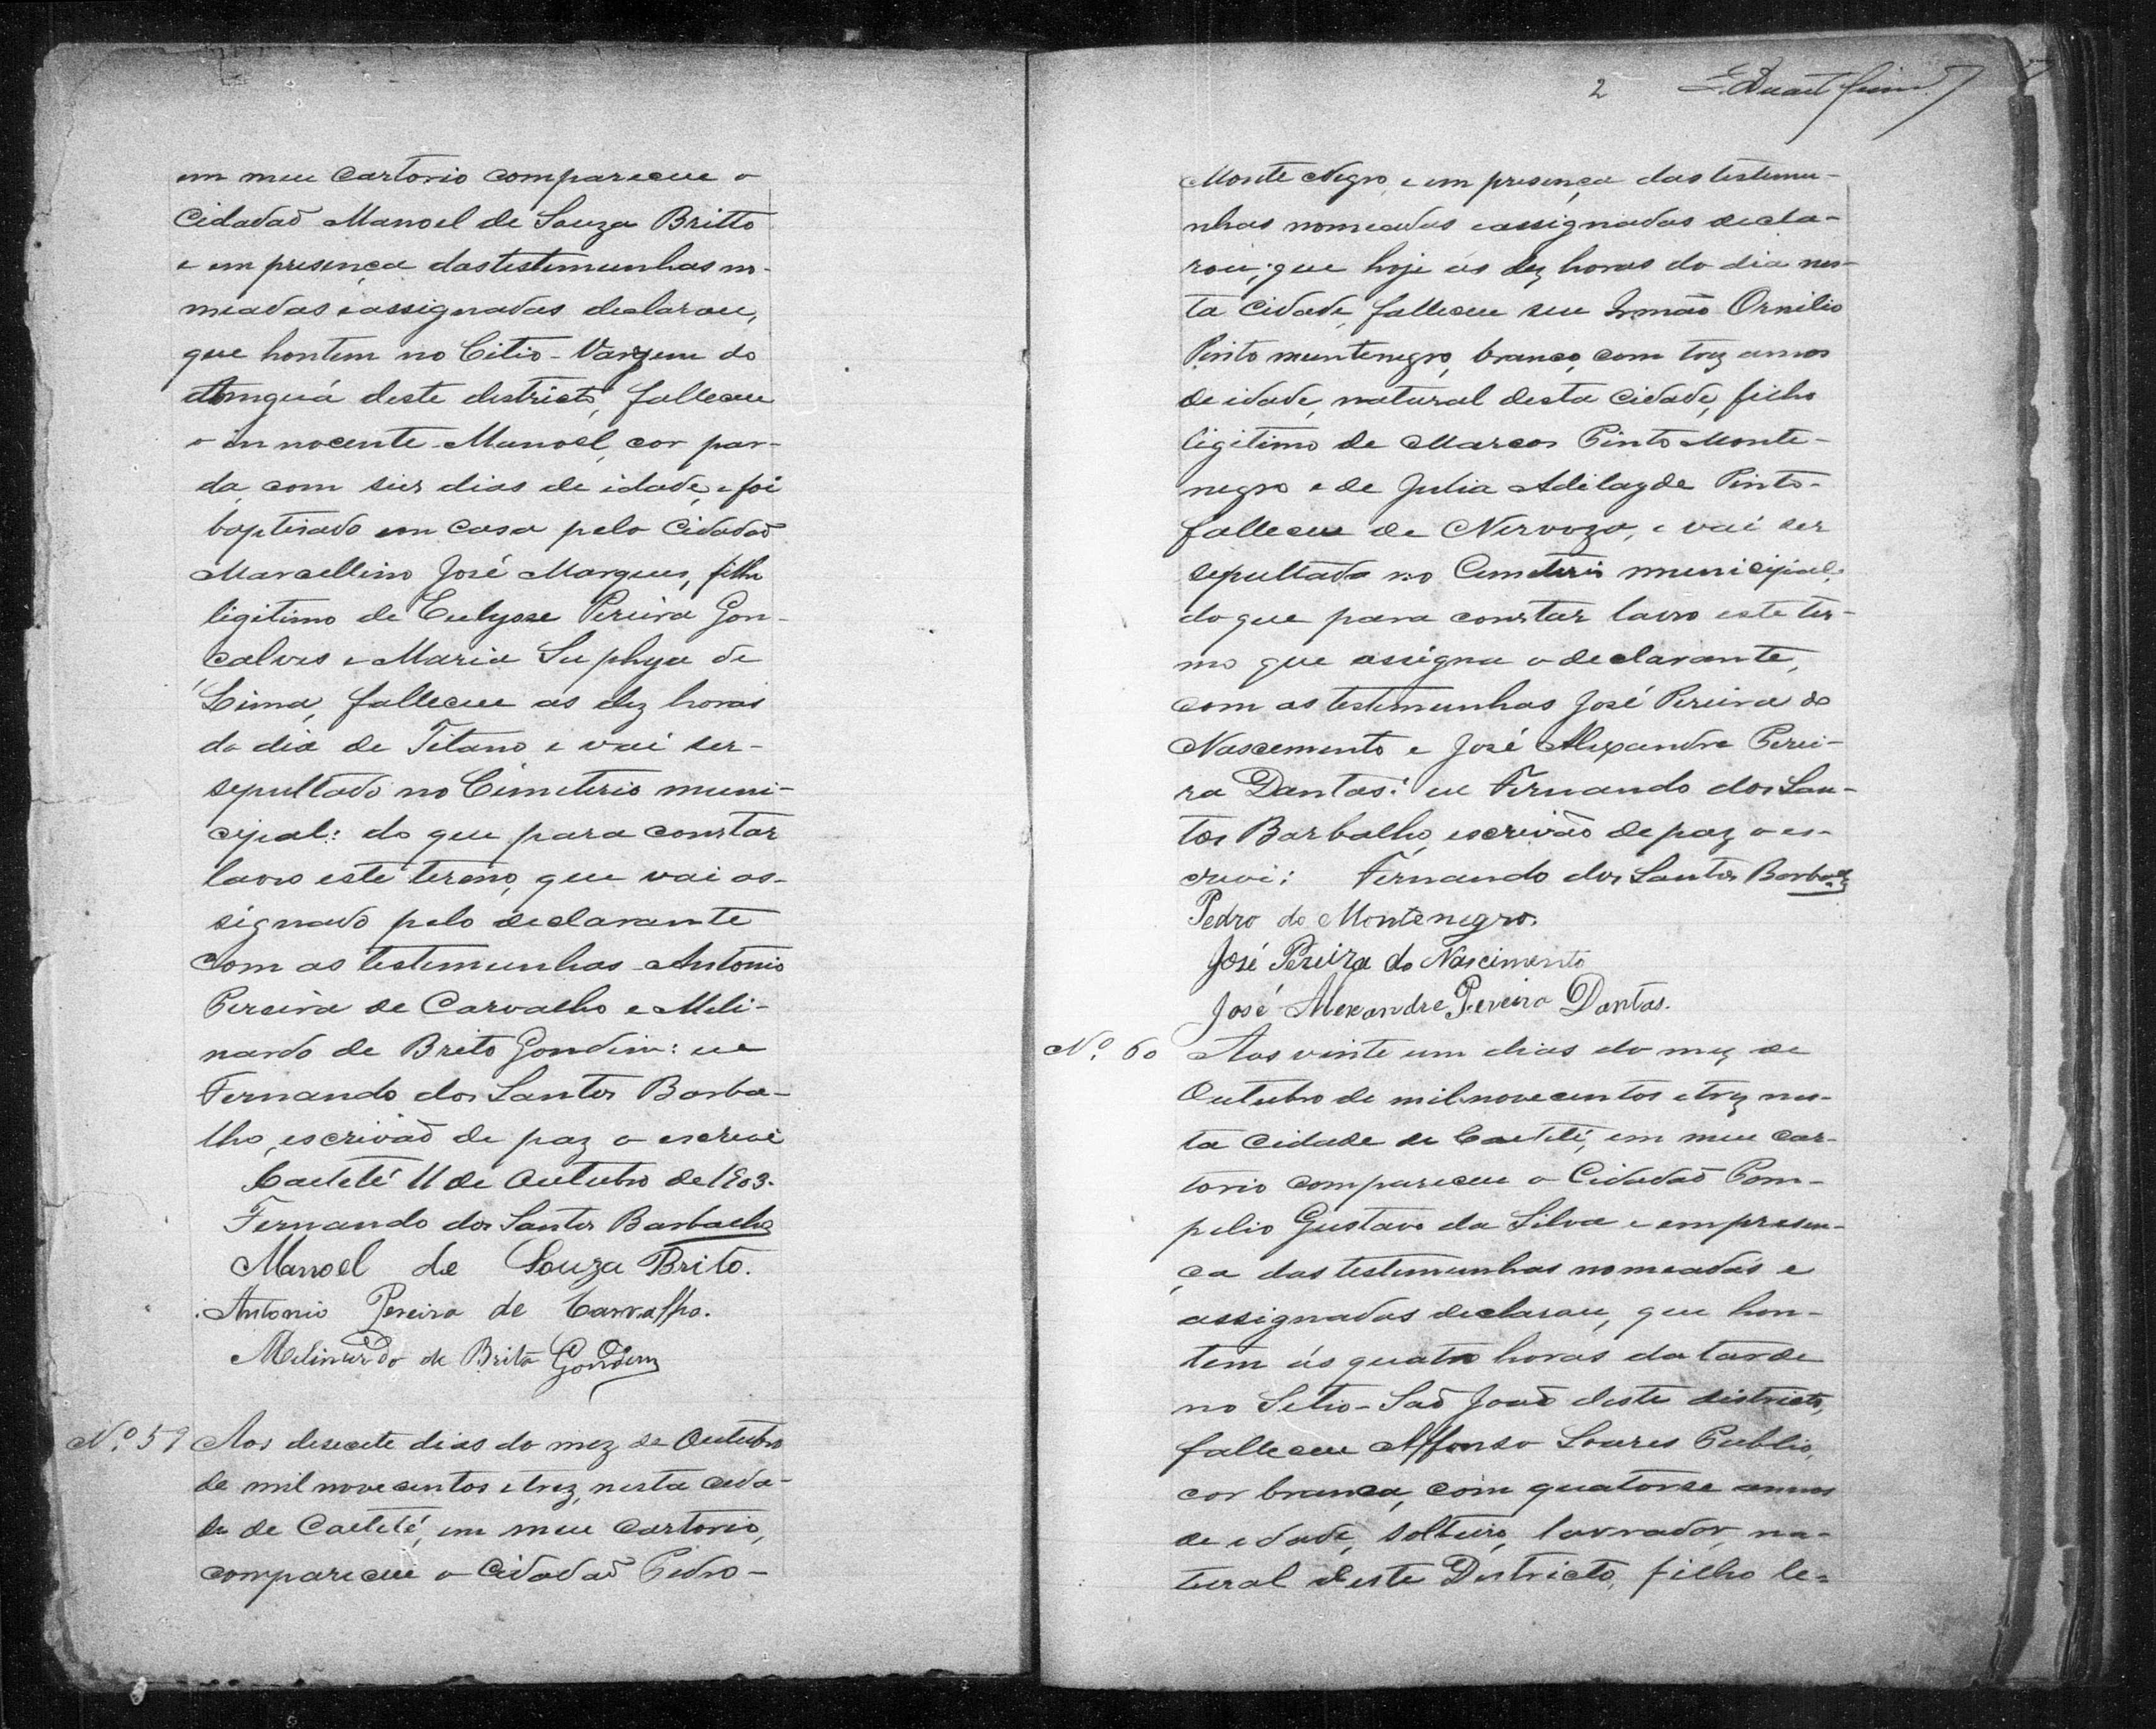 em meu Cartorio compareceu o
Cidadaõ Manoel de Souza Britto
e em presença das testemunhas no-
meadas e assignadas declarou,
que hontem no Citio - Vargem do
deste districto, falleceu
o innocente Manoel, cor par-
da, com seis dias de idade, e foi
baptisado em casa pelo Cidadaõ
Marcellino José Marques, filho
ligitimo de Pereira Gon-
calves e Maria de
Lima, falleceu as dez horas
do dia de Titano e vai ser-
sepultado no Cimeterio muni-
cipal: do que para constar
lavro este termo, que vai as-
signado pelo declarante
com as testemunhas Antonio
Pereira de Carvalho e Meli-
nardo de Brito Gondim: eu
Fernando dos Santos Barba-
lho, escrivaõ de paz o escrevi
Caeteté 11 de Outubro de 1903.
Fernando dos Santos Barbalho
Manoel de Souza Brito.
Antonio Pereira de Carvalho.
Melinardo de Brito Gondim
Nº. 59 Aos desesete dias do mez de Outubro
de mil novecentos e trez, nesta cida-
de de Caeteté, em meu Cartorio,
compareceu o Cidadaõ Pedro -
2
Monte Negro, e em presença das testemu-
nhas nomeadas e assignadas decla-
rou; que hoje ás dez horas do dia nes-
ta Cidade, falleceu seu Irmaõ Ornilio
Pinto muntenegro, branco, com trez annos
de idade, natural desta Cidade, filho
ligitimo de Marcos Pinto Monte-
negro e de Julia Adilayde Pinto-
falleceu de Nervozo, e vai ser
sepultado no Cimeterio municipal,
do que para constar lavro este ter-
mo que assigna o declarante,
com as testemunhas José Pereira do
Nascemento e José Alexandre Perei-
ra Dantas: eu Fernando dos San-
tos Barbalho, escrivaõ de paz o es-
crevi: Fernando dos Santos Barbalho
Pedro de Montenegro.
José Pereira do Nascimento
José Alexandre Pereira Dantas.
Nº. 60 Aos vinte um dias do mez de
Outubro de mil novecentos e trez nes-
ta Cidade de Caeteté, em meu car-
torio compareceu o Cidadaõ Pom-
pelio Gustavo da Silva e em presen-
ça das testemunhas nomeadas e
assignadas declarou, que hon-
tem ás quatro horas da tarde
no Setio - Saõ Joaõ deste districto,
falleceu Affonso Soares Publio,
cor branca, com quatorse annos
de edade, solteiro, lavrador, na-
tural deste Districto, filho le-